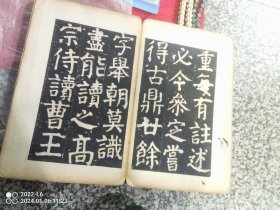 重每有註述
必令參定嘗
得古鼎廿餘
字舉朝莫識
盡能讀之高
宗侍讀曹王
2022-L6
2024.01.06 11:23